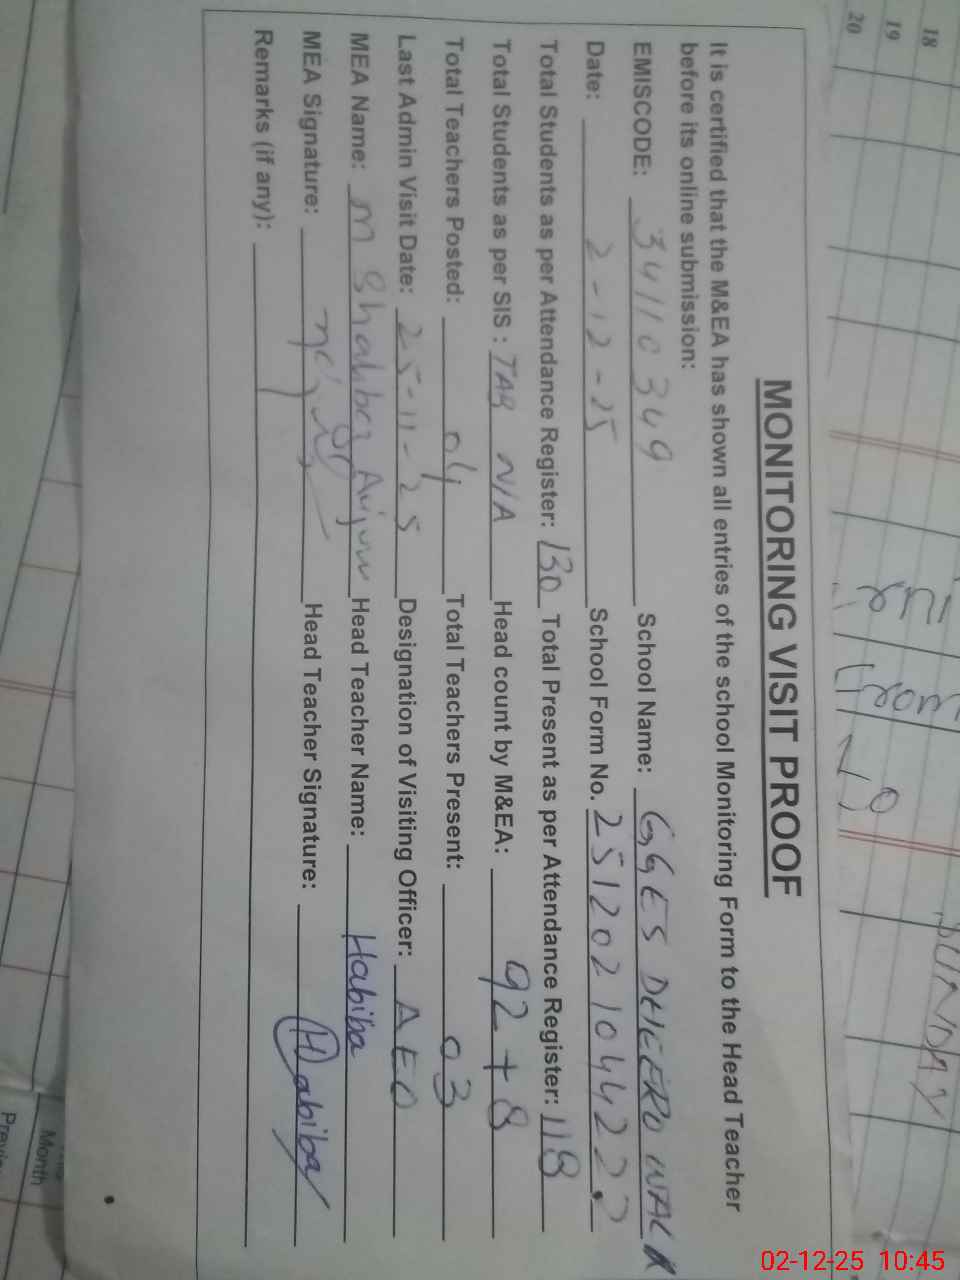 MONITORING VISIT PROOF
It is certified that the M&EA has shown all entries of the school Monitoring Form to the Head Teacher
before its online submission:
EMISCODE: 34110349 School Name: GGES
Date: 2-12-25 School Form No.
Total Students as per Attendance Register: 130 Total Present as per Attendance Register: 118
Total Students as per SIS : TAB N/A Head count by M&EA: 92+8
Total Teachers Posted: 04 Total Teachers Present: 03
Last Admin Visit Date: 25-11-25 Designation of Visiting Officer: AEO
MEA Name: M Head Teacher Name: Habiba
MEA Signature: Head Teacher Signature: Habiba
Remarks (if any):
18
19
20
SUNDAY
Month
02-12-25 10:45